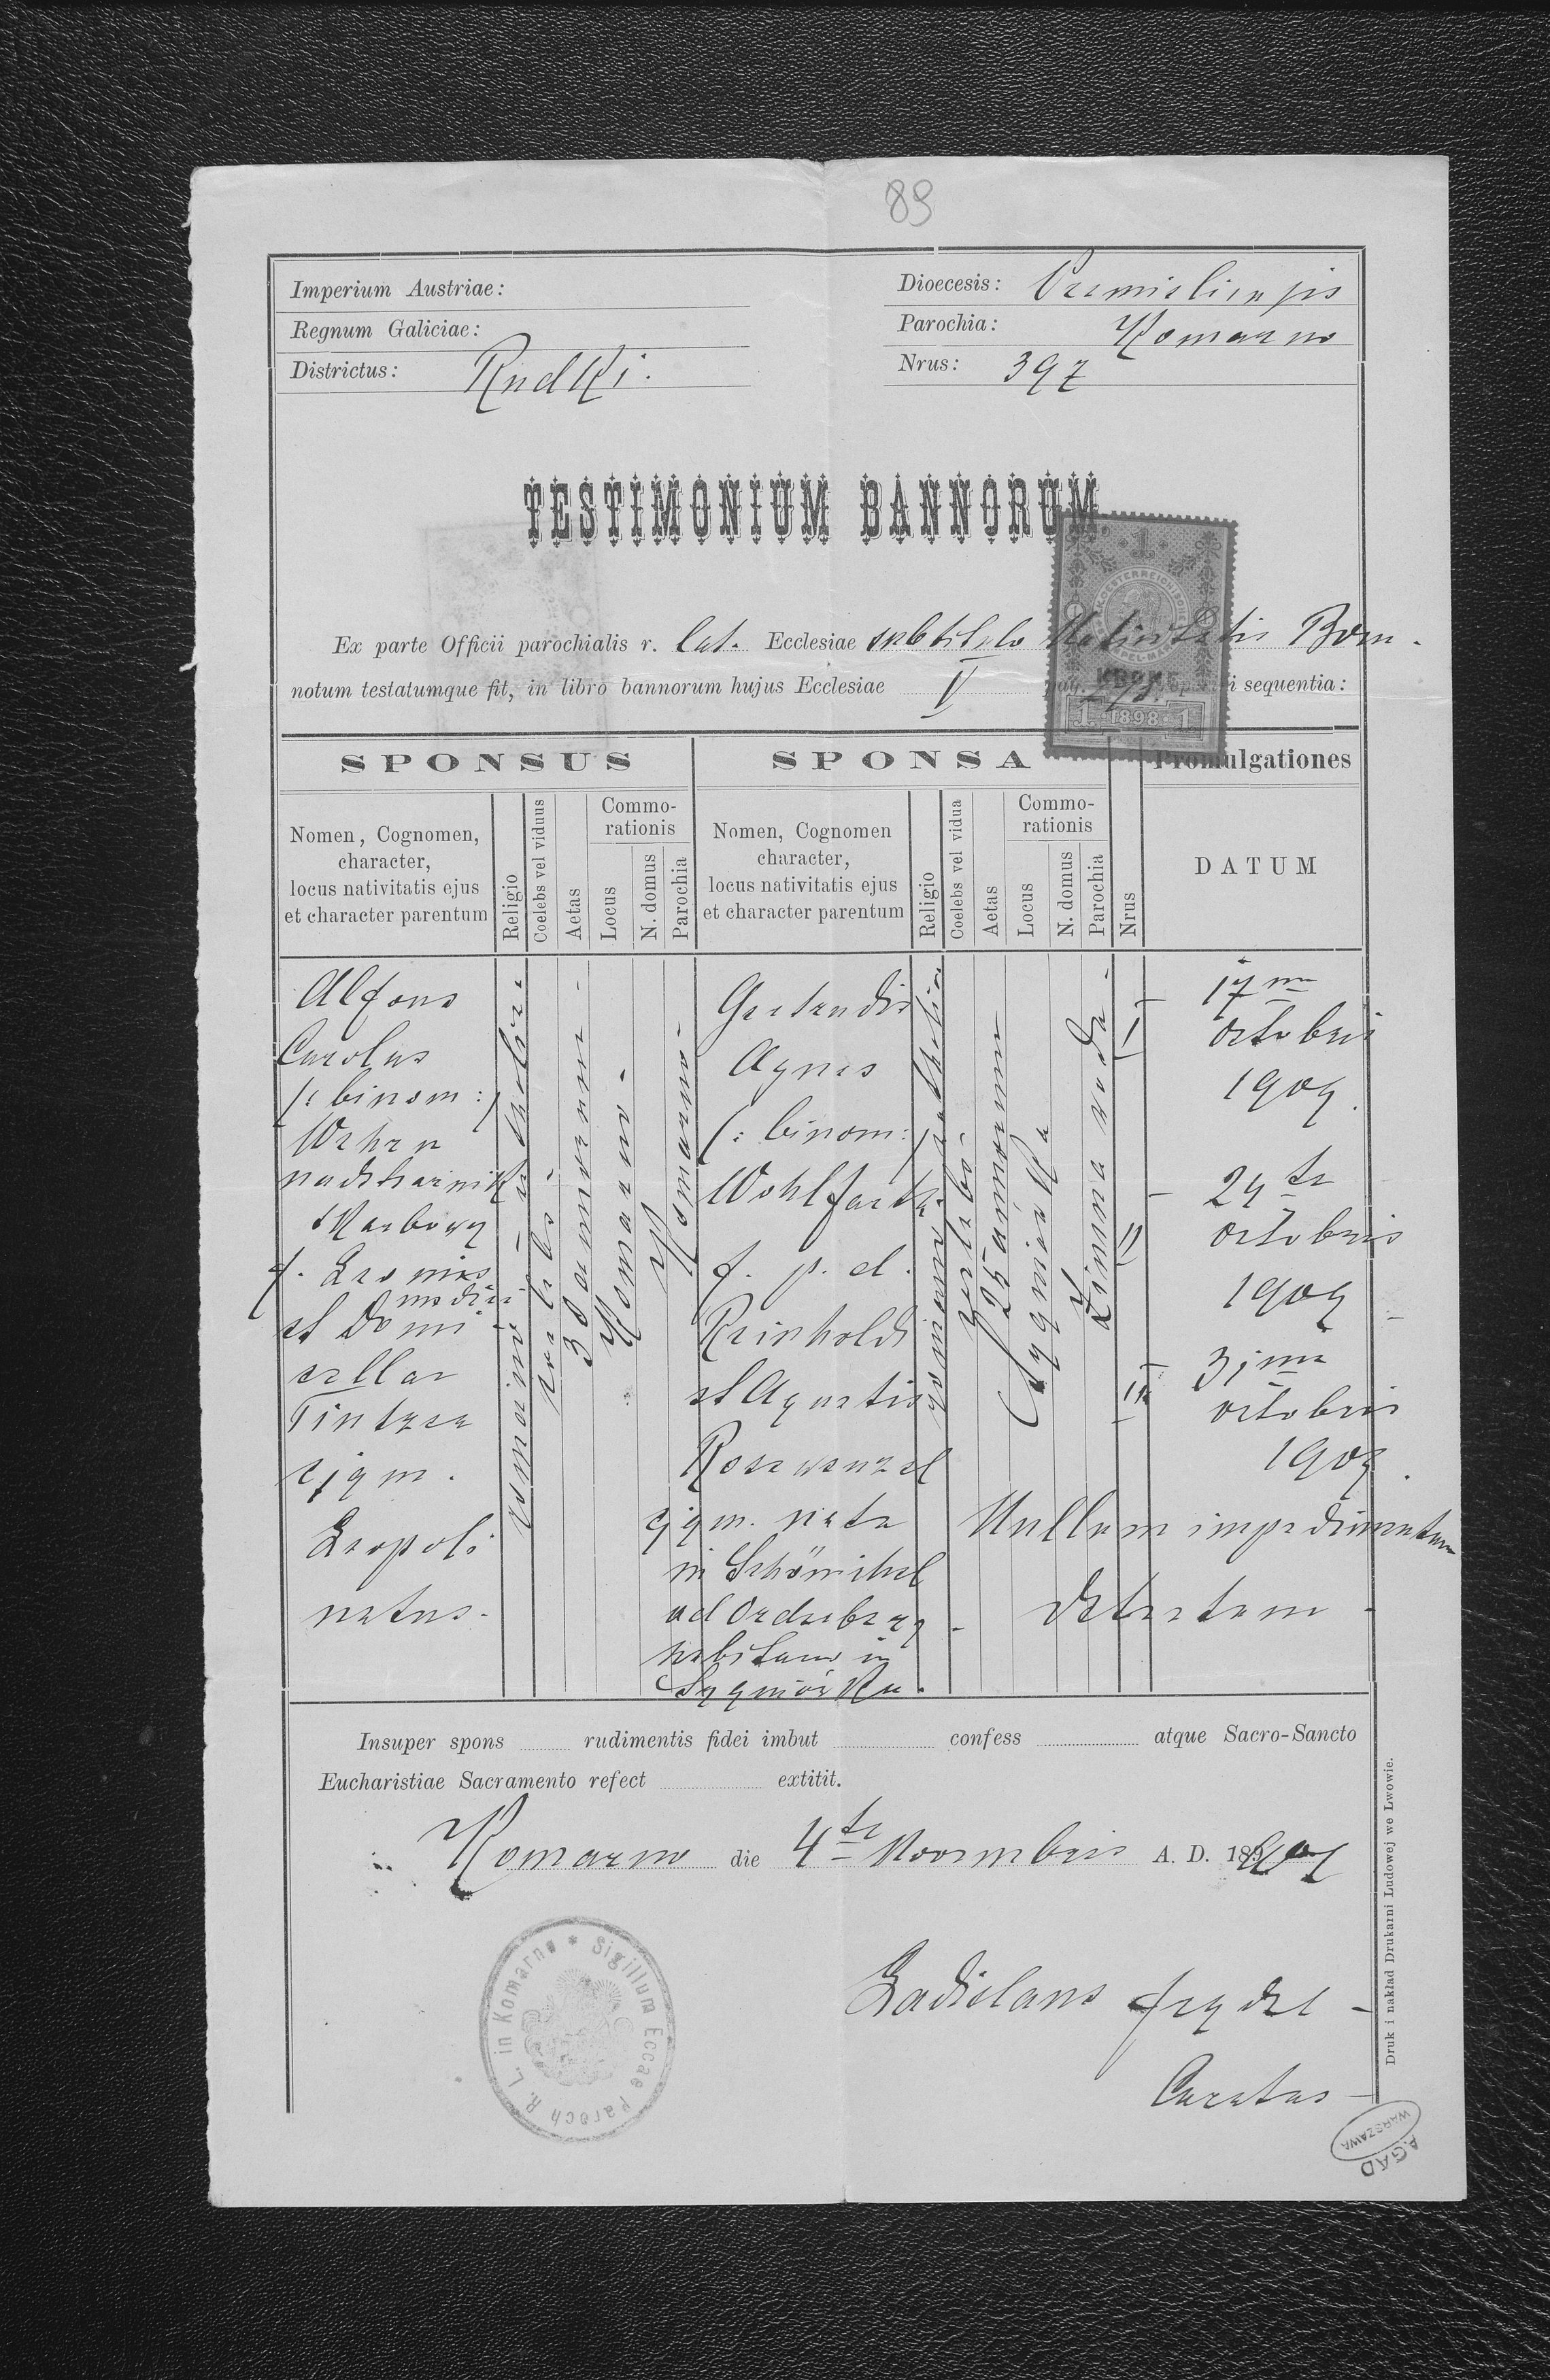 89
Imperium Austriae:
Regnum Galiciae:
Districtus: Rudki.
Dioecesis: Premisliensis
Parochia: Komarno
Nrus: 397
TESTIMONIUM BANNORUM
Ex parte Officii parochialis r. lat. Ecclesiae sub titulo Nativitatis Bvm.
notum testatumque fit, in libro bannorum hujus Ecclesiae V pag. sequentia:
1 KRONE
1 1898 1
SPONSUS
SPONSA
Promulgationes
Nomen, Cognomen,
character,
locus nativitatis ejus
et character parentum
Religio
Coelebs vel viduus
Aetas
Commo-
rationis
Locus
N. domus
Parochia
Nomen, Cognomen
character,
locus nativitatis ejus
et character parentum
Religio
Coelebs vel vidua
Aetas
Commo-
rationis
Locus
N. domus
Parochia
Nrus
DATUM
Alfons
Carolus
(: binom :)
Wehrn
nadstrażnik
skarbowy
f.
et Domi
cellae
Tintzer
ejqm.
Leopoli
natus.
romano catholicae
coelebs
30 annorum
Komarno
Komarno
Gertrudis
Agnes
(: binom: )
Wohlfarth
f. p. d.
Reinholdi
et Agnetis
Rosewenzel
ejqm. nata
in Schönichel
ad Oderberg
habitans in
Sygniówka.
romano catholica
25 annorum
Sygniówka
Zimna woda
I
17ma
octobris
1909.
II
24ta
octobris
1909
III
31ma
octobris
1909.
Nullum impedimentum
detectum
Insuper spons rudimentis fidei imbut confess atque Sacro-Sancto
Eucharistiae Sacramento refect extitit.
Komarno die 4ta Novembris A. D. 1909
Ladislaus Frydel
Curatus
Sigillum Eccae Paroch R. L. in Komarno
Druk i nakład Drukarni Ludowej we Lwowie.
AGAD
WARSZAWA